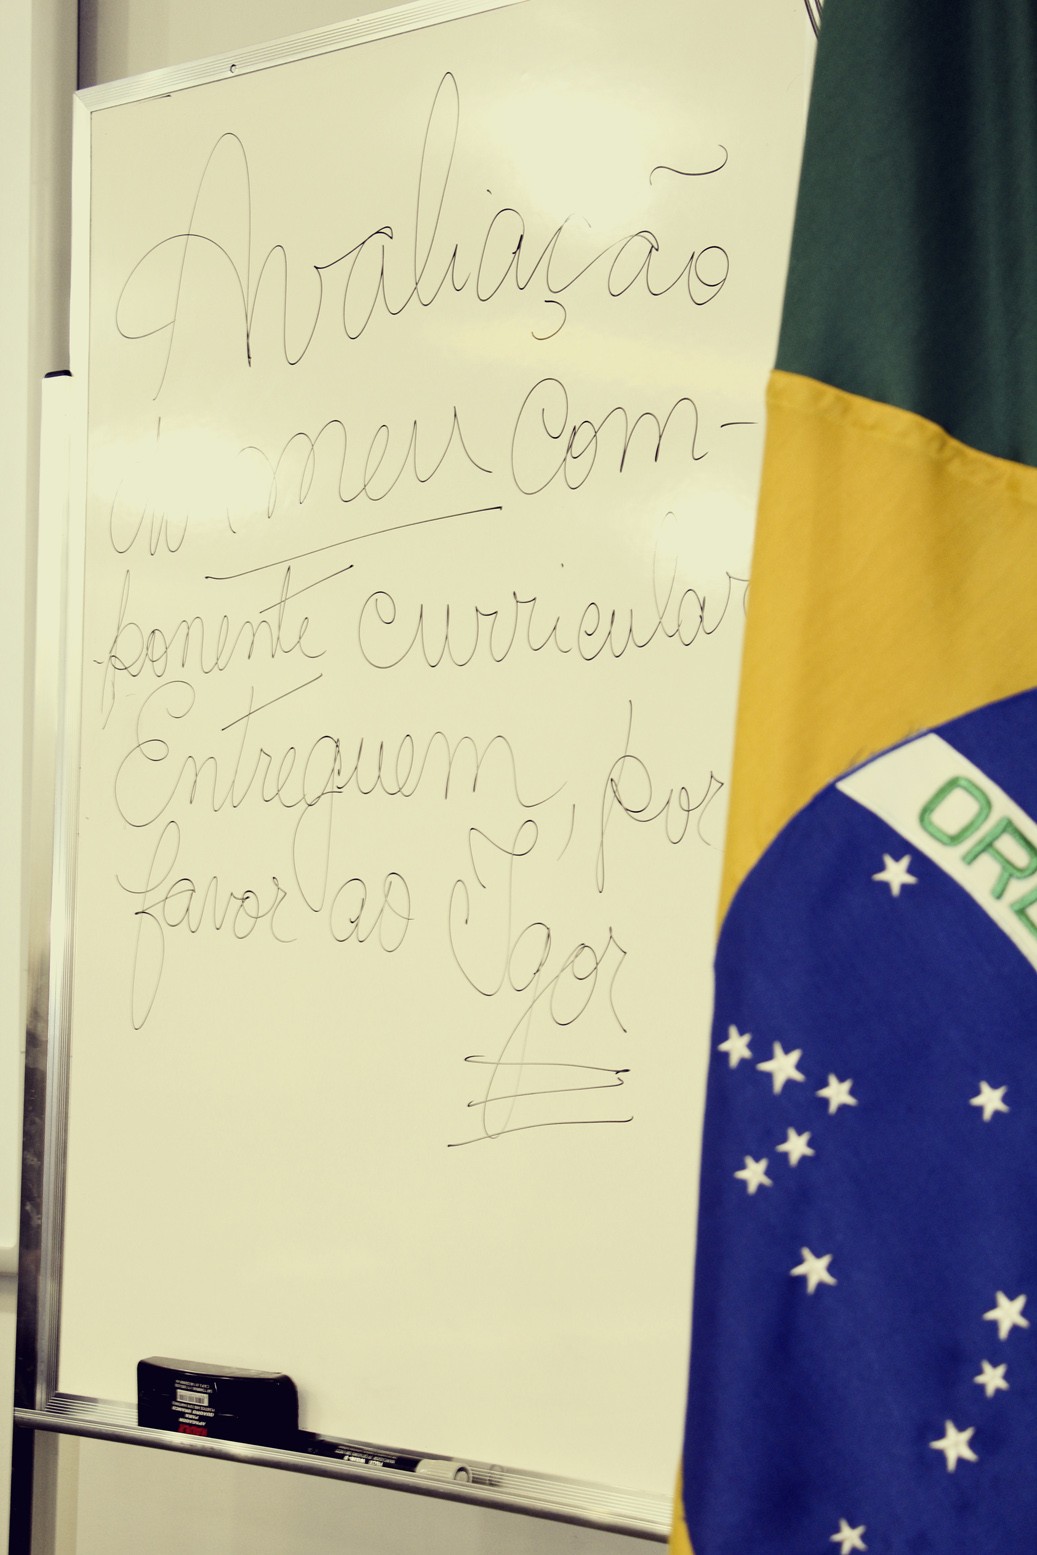 Avaliação
do meu com-
ponente curricular
Entreguem, por
favor ao Igor
ORD